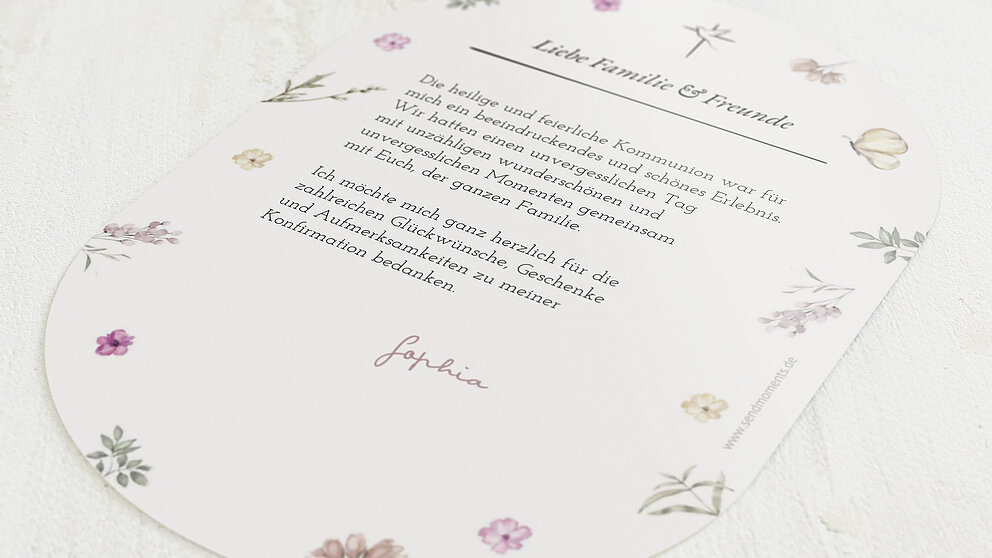 Liebe Familie & Freunde
Die heilige und feierliche Kommunion war für
mich ein beeindruckendes und schönes Erlebnis.
Wir hatten einen unvergesslichen Tag
mit unzähligen wunderschönen und
unvergesslichen Momenten gemeinsam
mit Euch, der ganzen Familie.
Ich möchte mich ganz herzlich für die
zahlreichen Glückwünsche, Geschenke
und Aufmerksamkeiten zu meiner
Konfirmation bedanken.
Sophia
www.sendmoments.de